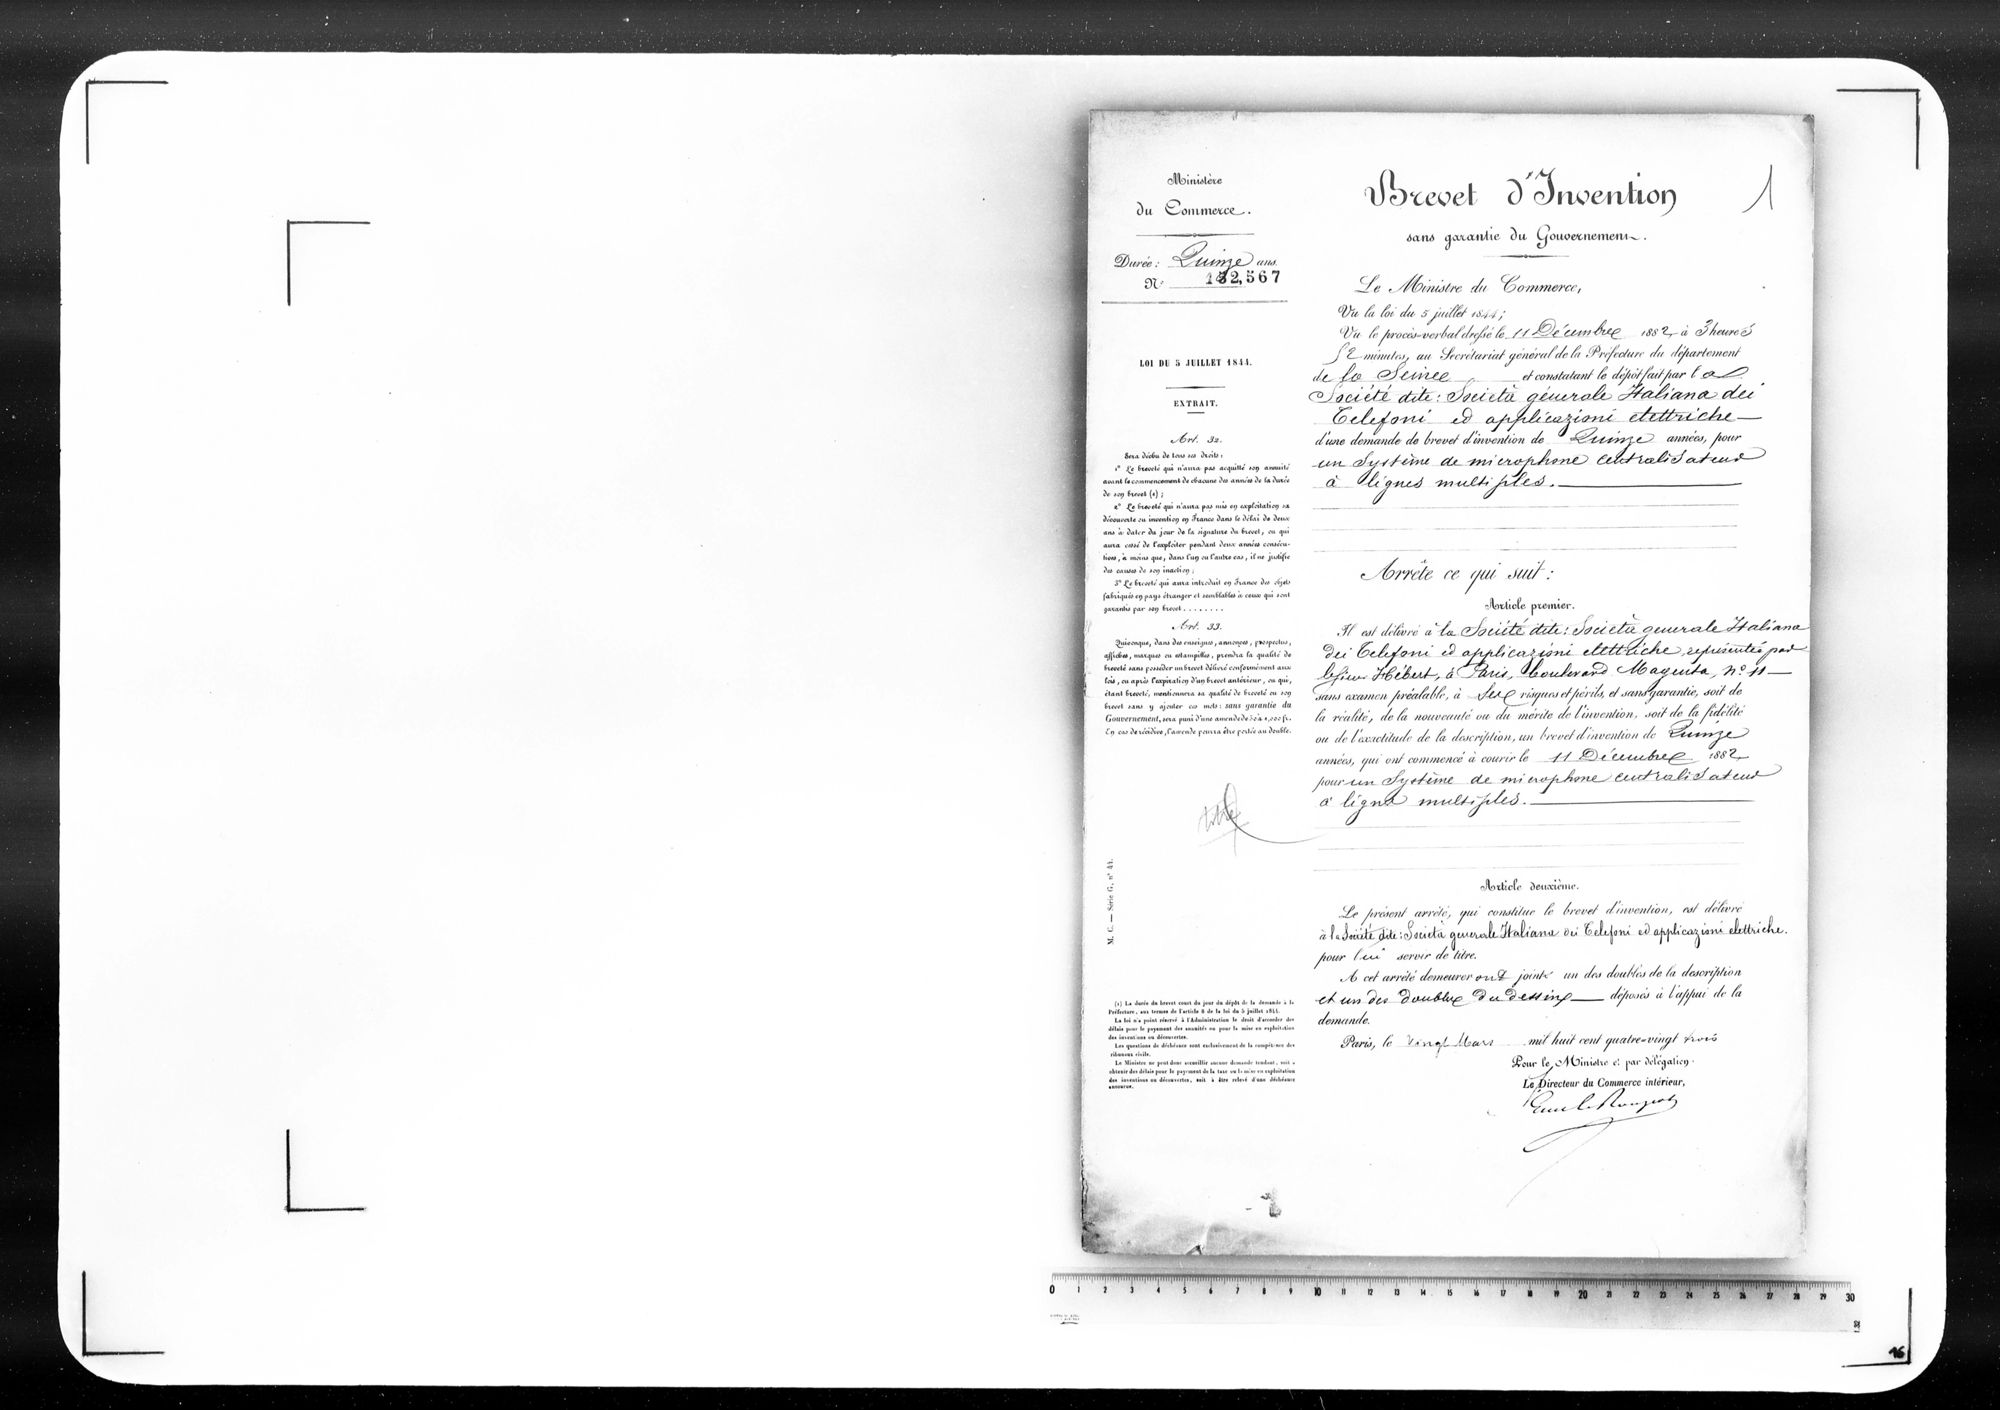 Ministère
du Commerce.
Durée : Quinze ans.
N° 152,567
LOI DU 5 JUILLET 1844.
EXTRAIT.
Art. 32.
Sera déchu de tous ses droits :
1° Le breveté qui n'aura pas acquitté son annuité
avant le commencement de chacune des années de la durée
de son brevet (1) ;
2° Le breveté qui n'aura pas mis en exploitation sa
découverte ou invention en France dans le délai de deux
ans à dater du jour de la signature du brevet, ou qui
aura cessé de l'exploiter pendant deux années consécu-
tives, à moins que, dans l'un ou l'autre cas, il ne justifie
des causes de son inaction ;
3° Le breveté qui aura introduit en France des objets
fabriqués en pays étranger et semblables à ceux qui sont
garantis par son brevet ........
Art. 33.
Quiconque, dans des enseignes, annonces, prospectus,
affiches, marques ou estampilles, prendra la qualité de
breveté sans posséder un brevet délivré conformément aux
lois, ou après l'expiration d'un brevet antérieur, ou qui,
étant breveté, mentionnera sa qualité de breveté ou son
brevet sans y ajouter ces mots : sans garantie du
Gouvernement, sera puni d'une amende de 50 à 1,000 fr.
En cas de récidive, l'amende pourra être portée au double.
M. C. — Série G, n° 44.
(1) La durée du brevet court du jour du dépôt de la demande à la
Préfecture, aux termes de l'article 8 de la loi du 5 juillet 1844.
La loi n'a point réservé à l'Administration le droit d'accorder des
délais pour le payement des annuités ou pour la mise en exploitation
des inventions ou découvertes.
Les questions de déchéance sont exclusivement de la compétence des
tribunaux civils.
Le Ministre ne peut donc accueillir aucune demande tendant, soit à
obtenir des délais pour le payement de la taxe ou la mise en exploitation
des inventions ou découvertes, soit à être relevé d'une déchéance
encourue.
Brevet d'Invention
1
sans garantie du Gouvernement.
Le Ministre du Commerce,
Vu la loi du 5 juillet 1844 ;
Vu le procès-verbal dressé le 11 Décembre 1882, à 3 heures
52 minutes, au Secrétariat général de la Préfecture du département
de la Seine et constatant le dépôt fait par la
Société dite : Società générale Italiana dei
Telefoni ed applicazioni elettriche —
d'une demande de brevet d'invention de Quinze années, pour
un Système de microphone centralisateur
à lignes multiples.
Arrête ce qui suit :
Article premier.
Il est délivré à la Société dite : Società generale Italiana
dei Telefoni ed applicazioni elettriche, représentée par
le sieur Hébert, à Paris, boulevard Magenta, n° 11 —
sans examen préalable, à ses risques et périls, et sans garantie, soit de
la réalité, de la nouveauté ou du mérite de l'invention, soit de la fidélité
ou de l'exactitude de la description, un brevet d'invention de Quinze
années, qui ont commencé à courir le 11 Décembre 1882
pour un Système de microphone centralisateur
à ligne multiples.
Article deuxième.
Le présent arrêté, qui constitue le brevet d'invention, est délivré
à la Société dite : Società generale Italiana dei Telefoni ed applicazioni elettriche.
pour lui servir de titre.
A cet arrêté demeureront joints un des doubles de la description
et un des doubles du dessin — déposés à l'appui de la
demande.
Paris, le vingt Mars mil huit cent quatre-vingt trois
Pour le Ministre et par délégation.
Le Directeur du Commerce intérieur,
0 1 2 3 4 5 6 7 8 9 10 11 12 13 14 15 16 17 18 19 20 21 22 23 24 25 26 27 28 29 30
16